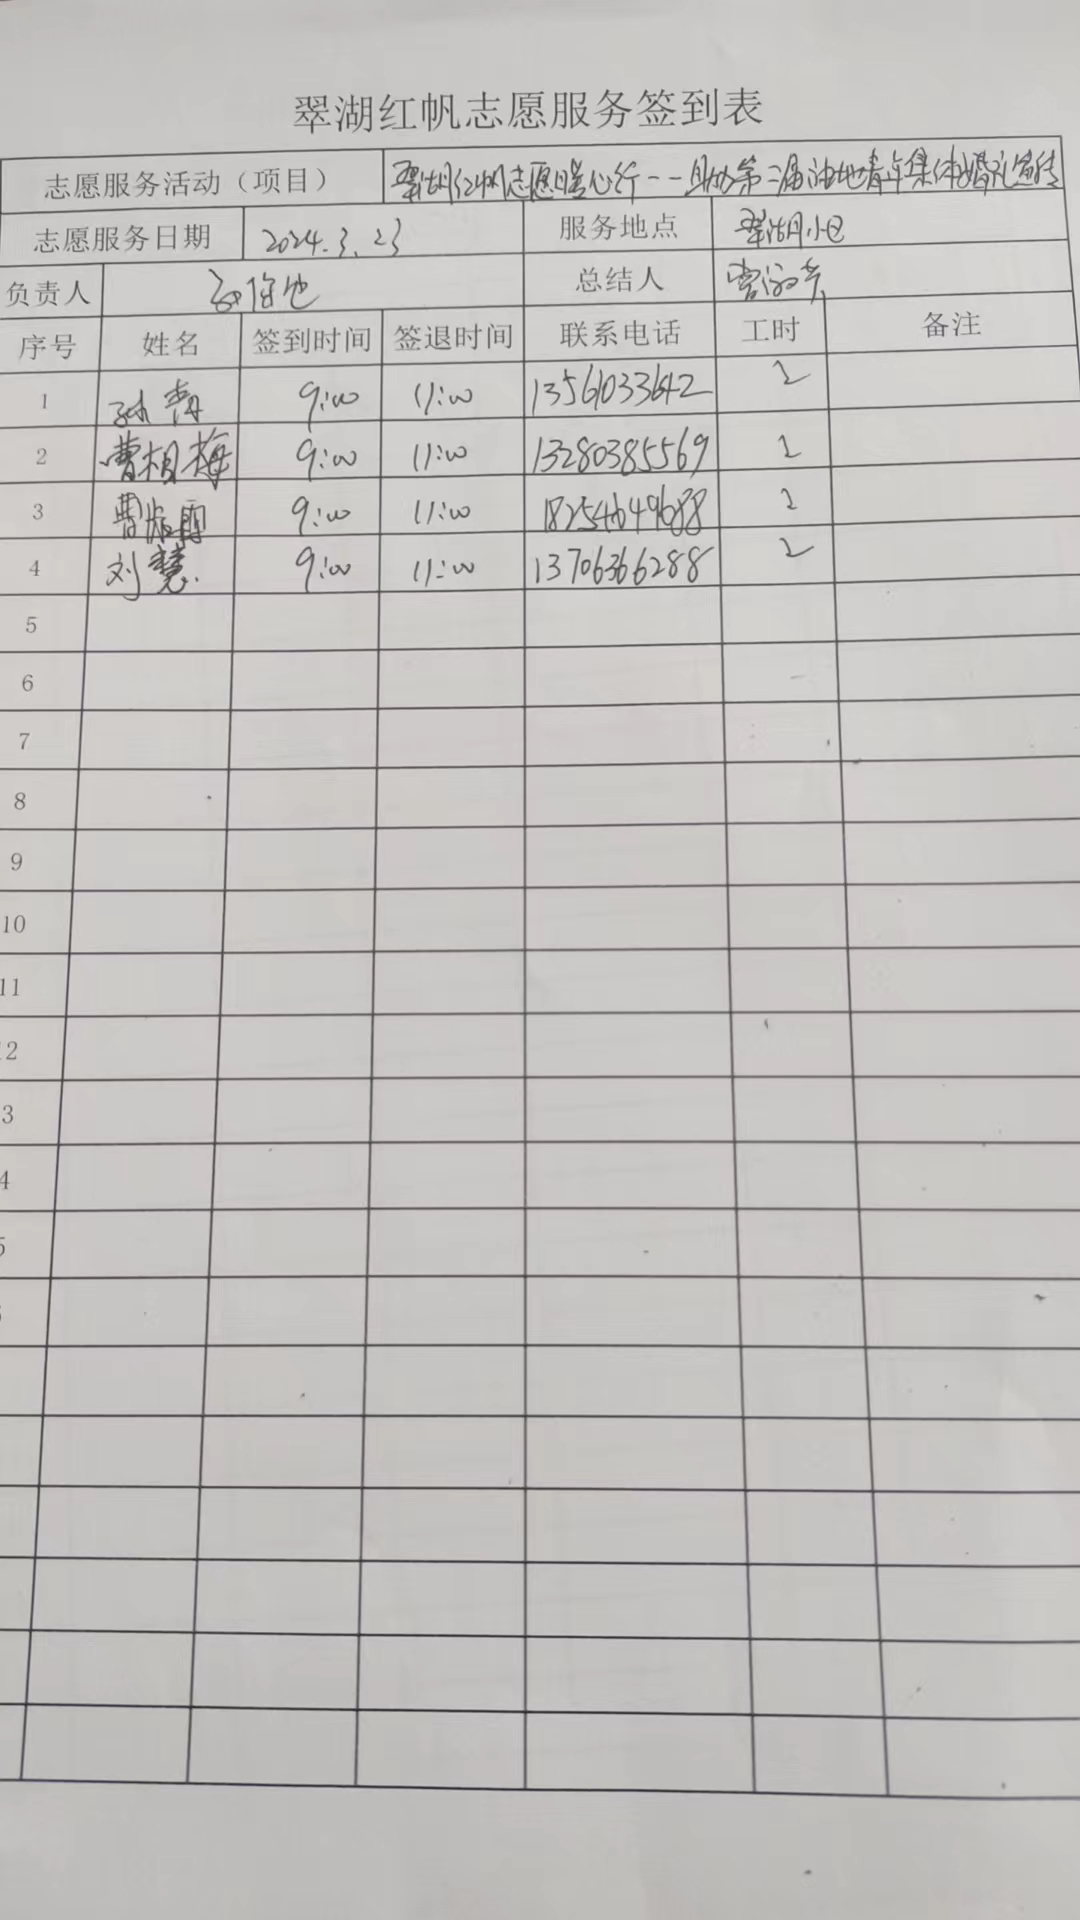 翠湖红帆志愿服务签到表
志愿服务活动（项目） 翠湖红帆志愿暖心行——助力第二届油地青年集体婚礼宣传
志愿服务日期 2024.3.23 服务地点 翠湖小区
负责人 总结人
序号 姓名 签到时间 签退时间 联系电话 工时 备注
1 孙青 9:00 11:00 13561033642 2
2 曹相梅 9:00 11:00 13280385569 2
3 9:00 11:00 18254649688 2
4 刘慧 9:00 11:00 13706366288 2
5
6
7
8
9
10
11
12
3
4
5